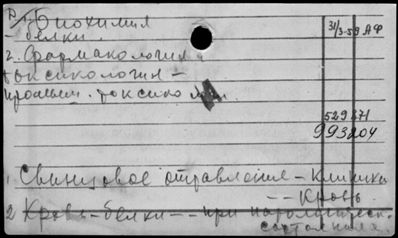 Р/1. Биохимия
31/3-59 АФ
- белки.
2. Фармакология и
токсикология -
промышл. токсикология.
529271
993204
1. Свинцовое отравление - клиника
- - Кровь
2 Кровь - белки - - при патологическ.
состояния.